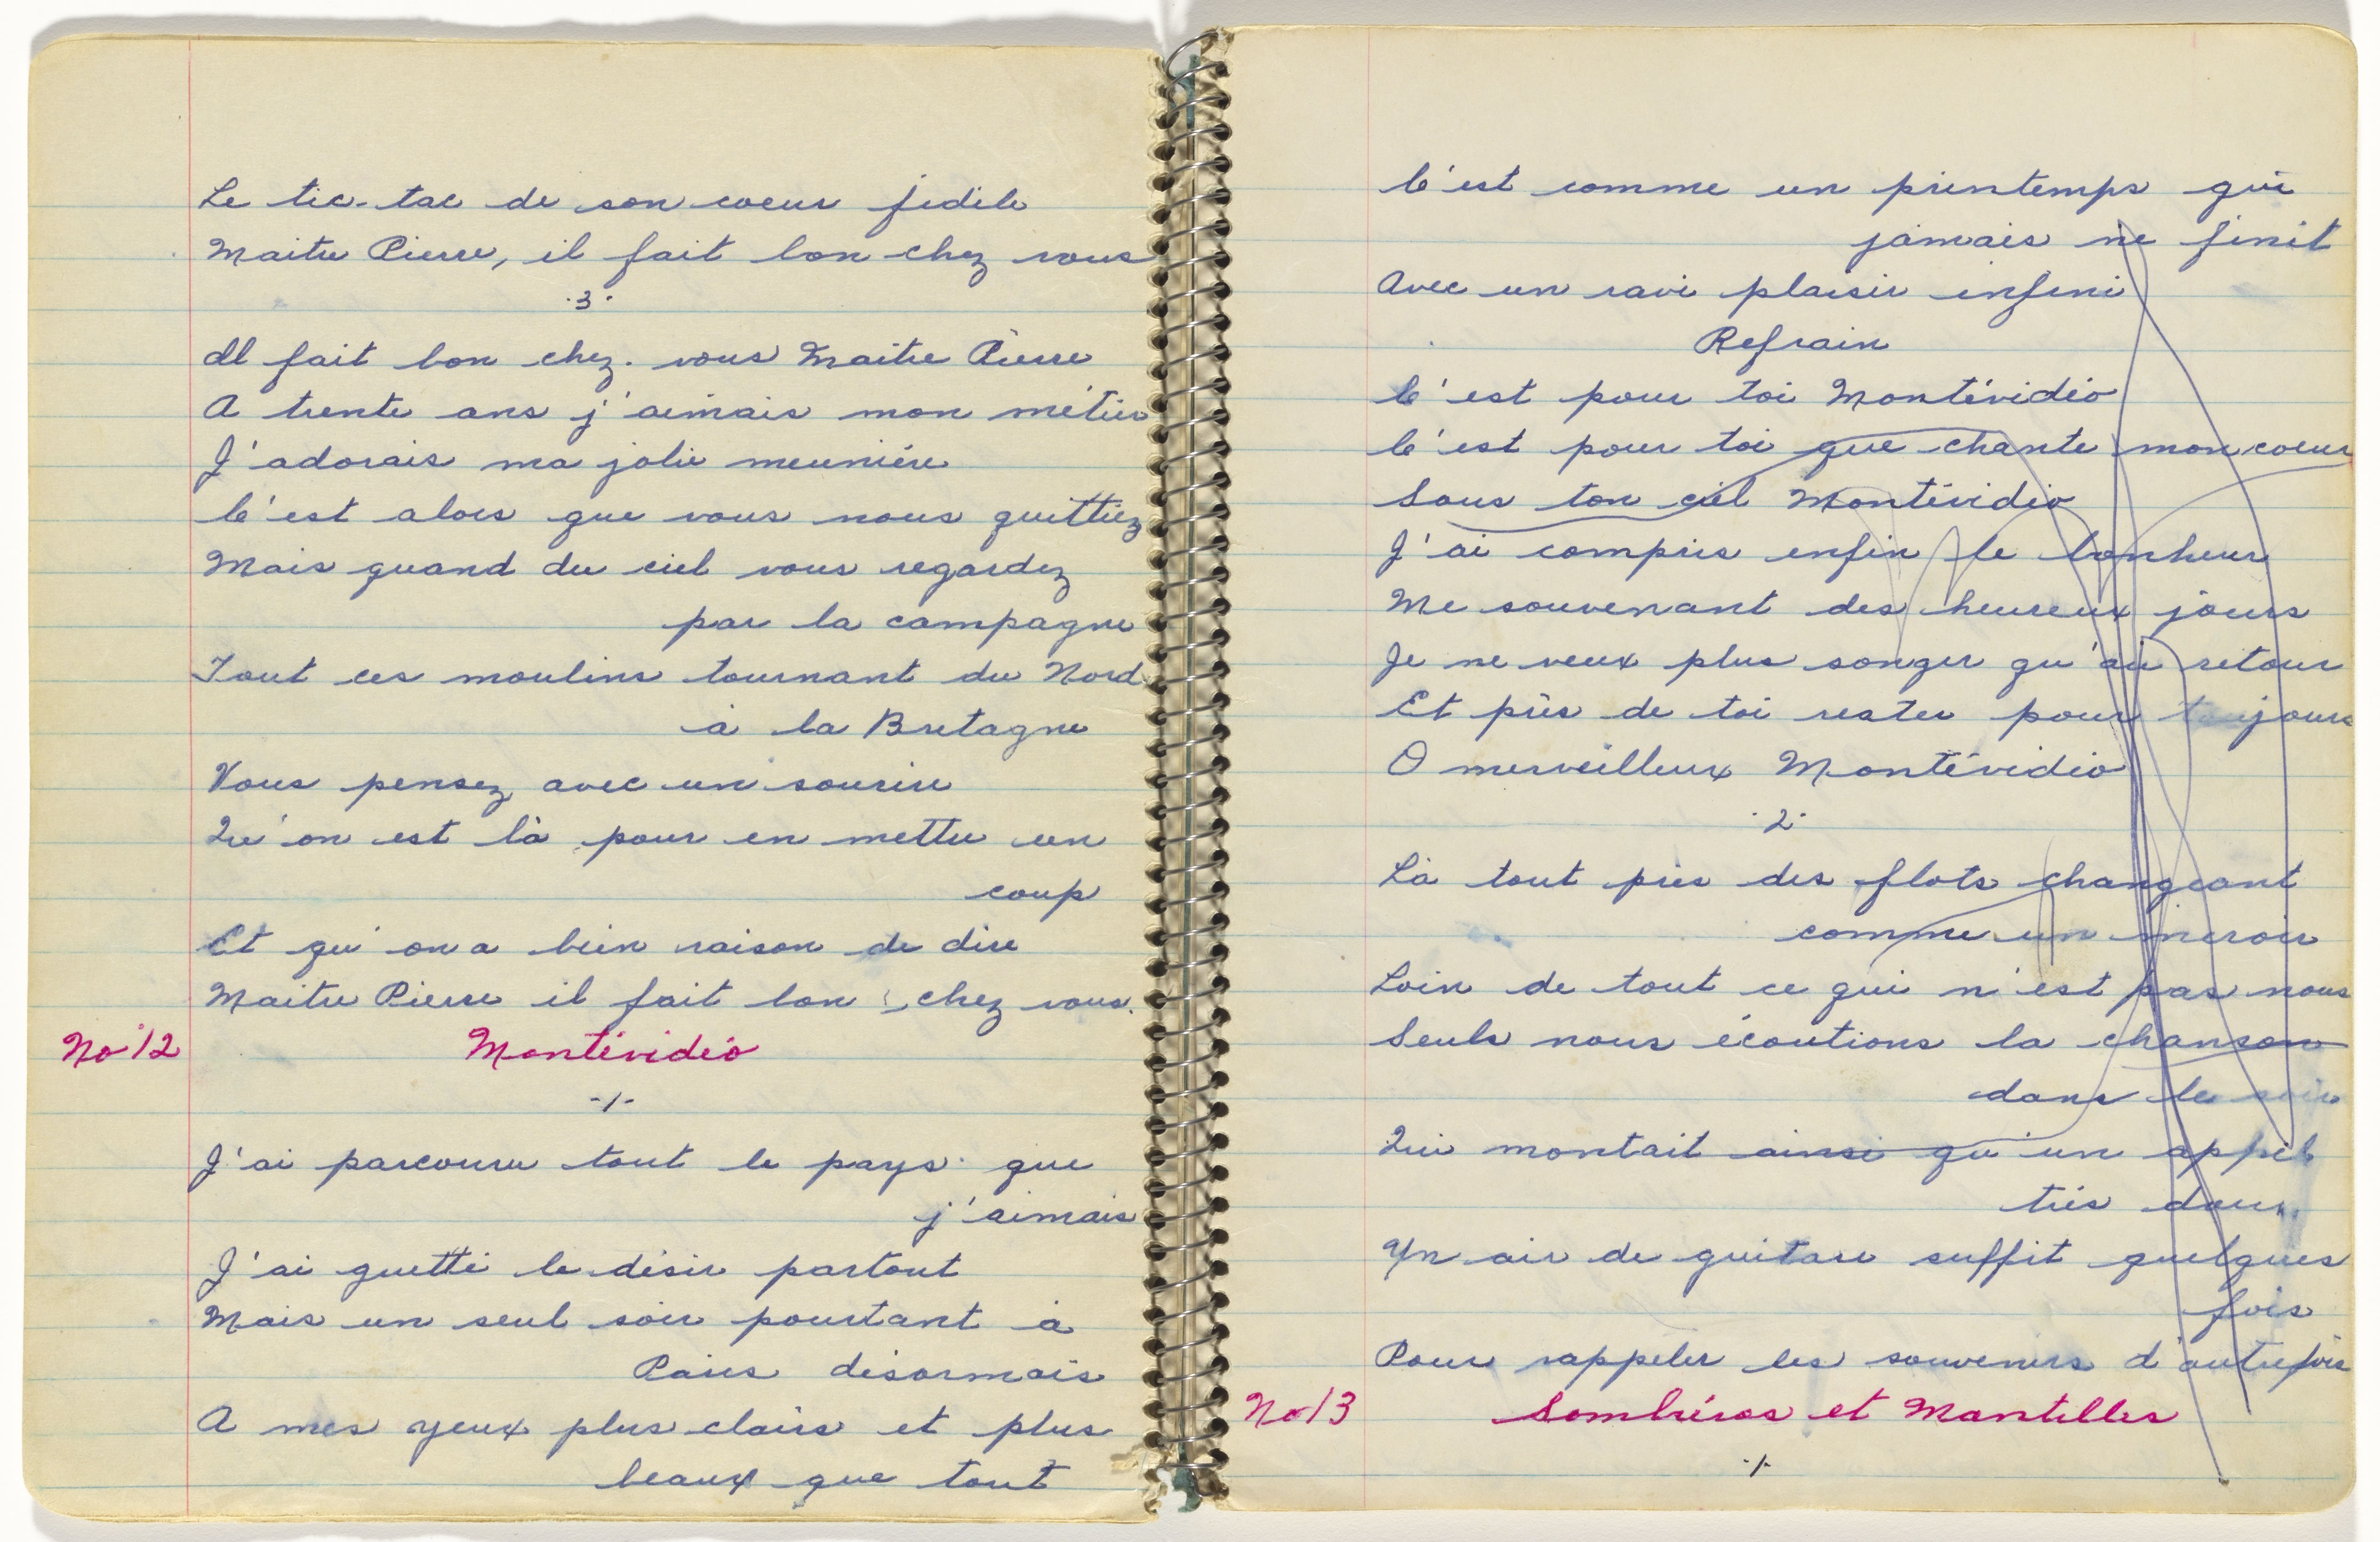 Le tic-tac de son coeur fidèle
Maitre Pierre, il fait bon chez vous
·3·
Il fait bon chez vous Maitre Pierre
A trente ans j'aimais mon métier
J'adorais ma jolie meunière
C'est alors que vous nous quittiez
Mais quand du ciel vous regardez
par la campagne
Tout ces moulins tournant du Nord
à la Bretagne
Vous pensez avec un sourire
Qu'on est là pour en mettre un
coup
Et qu'on a bien raison de dire
Maitre Pierre il fait bon chez vous.
No 12 Montévidéo
-1-
J'ai parcouru tout le pays que
j'aimais
J'ai guetté le désir partout
Mais un seul soir pourtant à
Paris désormais
A mes yeux plus clairs et plus
beaux que tout
C'est comme un printemps qui
jamais ne finit
Avec un ravi plaisir infini
Refrain
C'est pour toi Montévidéo
C'est pour toi que chante mon coeur
Sous ton ciel Montévidéo
J'ai compris enfin le bonheur
Me souvenant des heureux jours
Je ne veux plus songer qu'au retour
Et près de toi rester pour toujours
O merveilleux Montévidéo
·2·
Là tout près des flots changeant
comme un miroir
Loin de tout ce qui n'est pas nous
Seuls nous écoutions la chanson
dans le soir
Qui montait ainsi qu'un appel
très doux.
Un air de guitare suffit quelques
fois
Pour rappeler les souvenirs d'autrefois
No 13 Sombréros et Mantilles
·1·